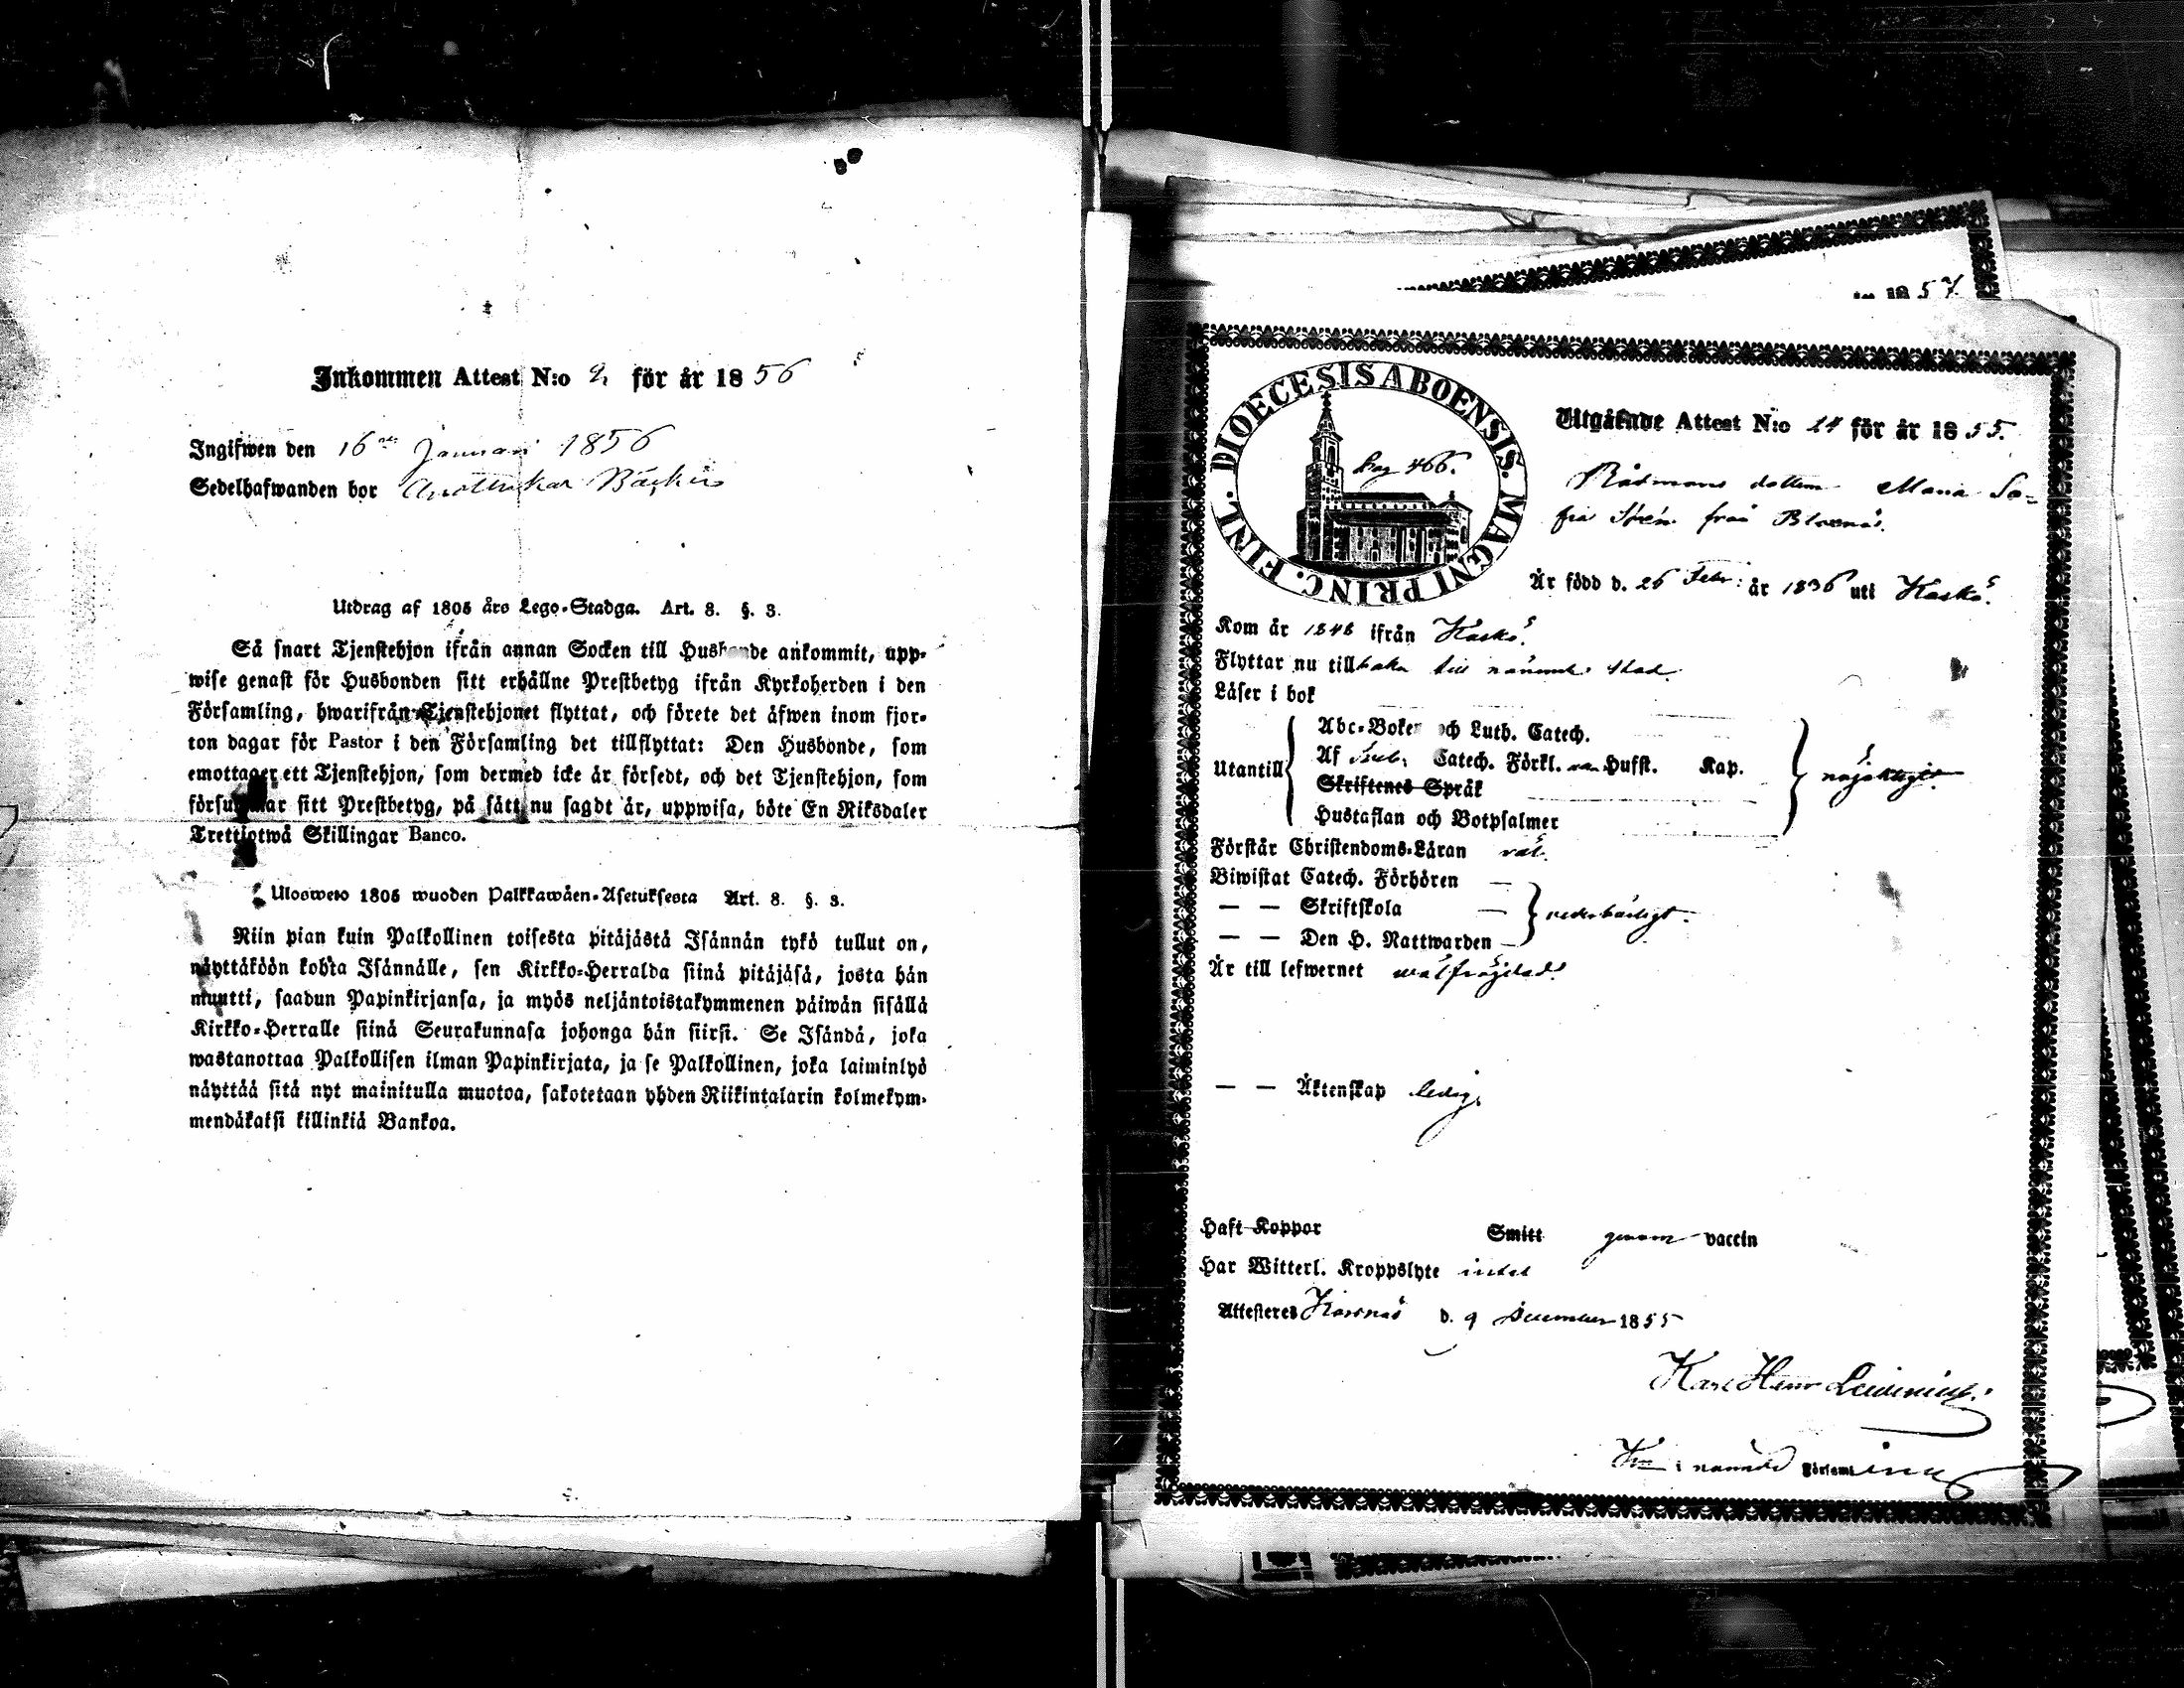 Inkommen Attest N:o 2, för år 1856
Ingifwen den 16de Januari 1856
Sedelhafwanden bor
Utdrag af 1805 års Lego-Stadga. Art. 8. §. 3.
Så snart Tjenstehjon ifrån annan Socken till Husbonde ankommit, upp-
wise genast för Husbonden sitt erhållne Prestbetyg ifrån Kyrkoherden i den
Församling, hwarifrån Tjenstehjonet flyttat, och förete det äfwen inom fjor-
ton dagar för Pastor i den Församling det tillflyttat: Den Husbonde, som
emottager ett Tjenstehjon, som dermed icke är försedt, och det Tjenstehjon, som
försummar sitt Prestbetyg, på sätt nu sagdt är, uppwisa, böte En Riksdaler
Trettiotwå Skillingar Banco.
Ulosweto 1805 wuoden Palkkawäen-Asetuksesta Art. 8. §. 3.
Niin pian kuin Palkollinen toisesta pitäjästä Isännän tykö tullut on,
näyttäköön kohta Isännälle, sen Kirkko-Herralda siinä pitäjäsä, josta hän
muutti, saadun Papinkirjansa, ja myös neljäntoistakymmenen päiwän sisällä
Kirkko-Herralle siinä Seurakunnasa johonga hän siirsi. Se Isändä, joka
wastanottaa Palkollisen ilman Papinkirjata, ja se Palkollinen, joka laiminlyö
näyttää sitä nyt mainitulla muotoa, sakotetaan yhden Riikintalarin kolmekym-
mendäkaksi killinkiä Bankoa.
18 57.
DIOECESIS ABOENSIS. MAGNI PRINC. FINL.
Pag 466.
Utgående Attest N:o 24 för år 1855.
Rådmans dottern Maria So-
fia från
Är född d. 26 Febr: år 1836 uti Kaskö.
Kom år 1848 ifrån Kaskö.
Flyttar nu tillbaka till nämnde stad.
Läser i bok
Abc-Boken och Luth. Catech.
Utantill Af Catech. Förkl. Husst. Kap. nöjaktigt.
Skriftenes Språk
Hustaflan och Botpsalmer
Förstår Christendoms-Läran väl.
Biwistat Catech. Förhören —
— — Skriftskola — vederbörligt.
— — Den H. Nattwarden —
Är till lefwernet wälfrägdad.
— — Äktenskap ledig.
Haft Koppor Smitt genom vaccin
Har Witterl. Kroppslyte intet
Attesteres d. 9 December 1855
Karl Henr
i nämnde Församl